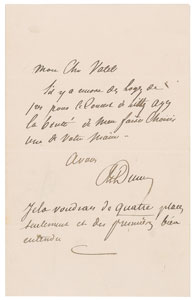 Mon Cher Valel
S'il y a encore des loges de
1er pour le Concert de
la bonté de m'en faire choisir
une de votre main
à vous
Je la voudrais de quatre places
seulement et des premières bien
entendu